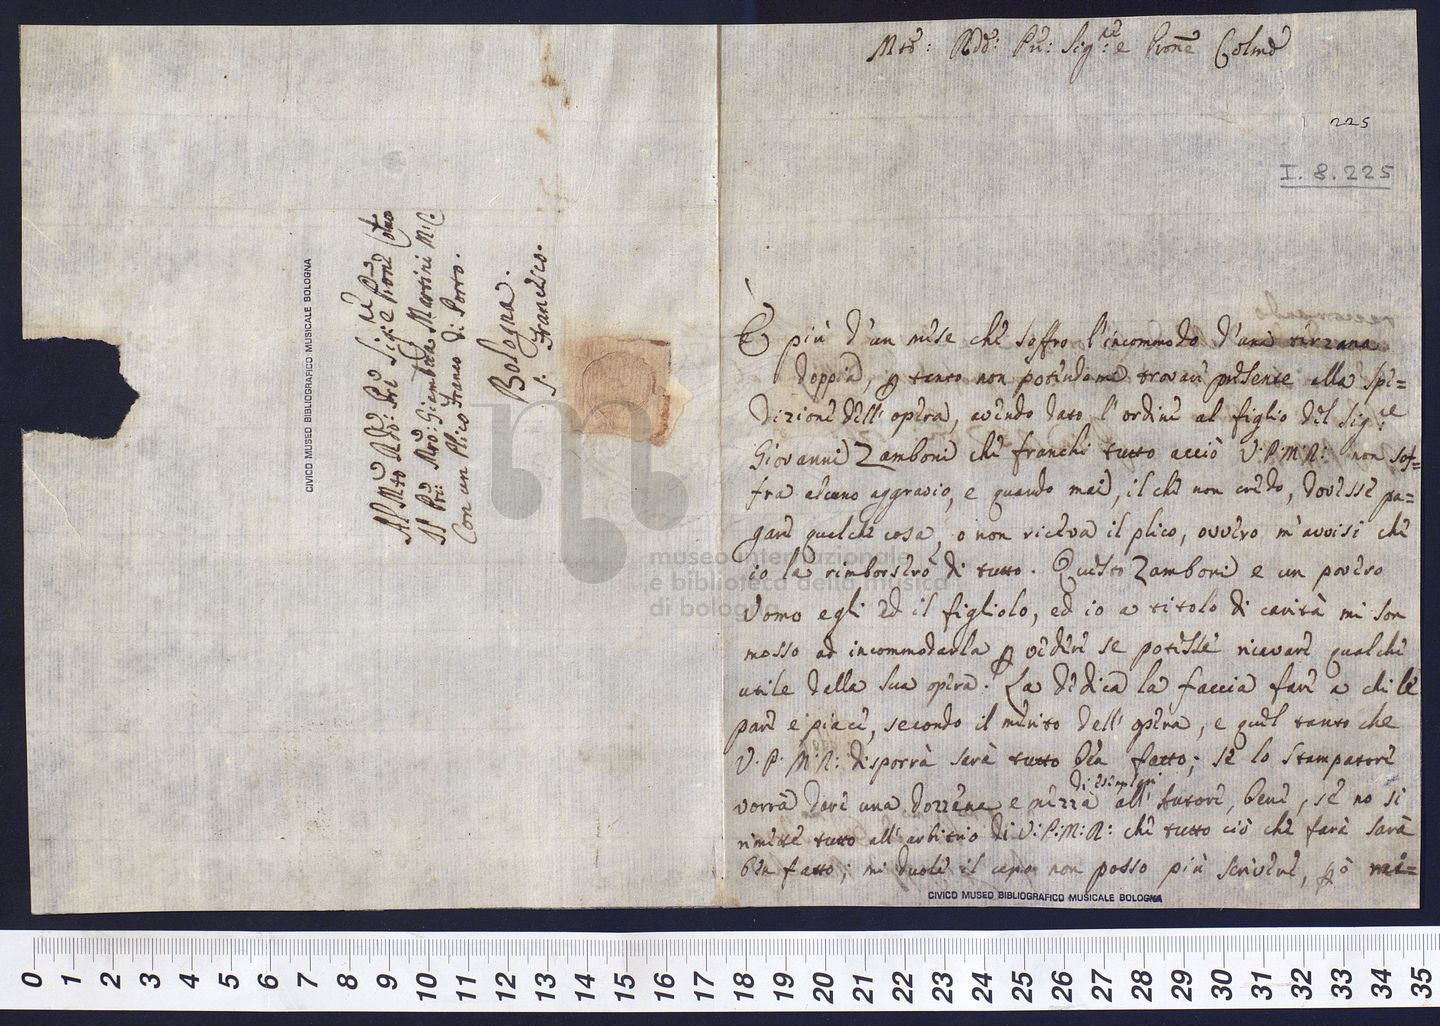 Al Mto Rdo: Pre Sig:re Pre
Il Pre: Mro: Giambtta Martini M: C:
Con un Plico Franco di Porto.
Bologna.
S: Francesco.
CIVICO MUSEO BIBLIOGRAFICO MUSICALE BOLOGNA
Mto: Rdo: Pre: Sig:re e Prone Colmo
225
I. 8. 225
È più d'un mese che soffro l'incommodo d'una terzana
doppia, p tanto non potendomi trovare presente alla spe=
dizione dell'opera, avendo dato l'ordine al figlio del Sig:re
Giovanni Zamboni che franchi tutto acciò V: P: M: R: non sof=
fra alcuno aggravio, e quando mai, il che non credo, dovesse pa=
gare qualche cosa, o non riceva il plico, ovvero m'avvisi che
io la rimborserò di tutto. Questo Zamboni e un povero
Uomo egli ed il figliolo, ed io a titolo di carità mi son
mosso ad incommodarla p vedere se potesse ricavare qualche
utile della sua opera. La dedica la faccia fare a chi le
pare e piace, secondo il merito dell'opera, e quel tanto che
V. P. M: R: disporrà sarà tutto ben fatto; se lo stampatore
vorrà dare una dozzena e mezza di esemplari all'Autore, bene, se no si
rimette tutto all'arbitrio di V: P: M: R: che tutto ciò che farà sarà
ben fatto; mi duole il capo non posso più scrivere, pò rei=
CIVICO MUSEO BIBLIOGRAFICO MUSICALE BOLOGNA
museo internazionale
e biblioteca della musica
di bologna
0 1 2 3 4 5 6 7 8 9 10 11 12 13 14 15 16 17 18 19 20 21 22 23 24 25 26 27 28 29 30 31 32 33 34 35